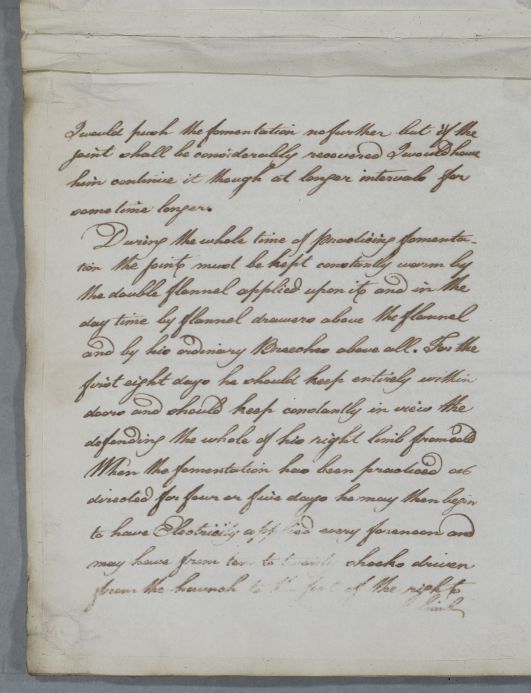 I would push the fomentation no further but if the
joint shall be considerably recovered I would have
him continue it though at longer intervals for
some time longer.
During the whole time of practising fomenta-
tion the joint must be kept constantly warm by
the double flannel applied upon it and in the
day time by flannel drawers above the flannel
and by his ordinary Breeches above all. For the
first eight days he should keep entirely within
doors and should keep constantly in view the
defending the whole of his right limb from cold
When the fomentation has been practiced as
directed for four or five days he may then begin
to have Electricity applied every forenoon and
may have from ten to twenty shocks driven
from the haunch to the foot of the right
limb